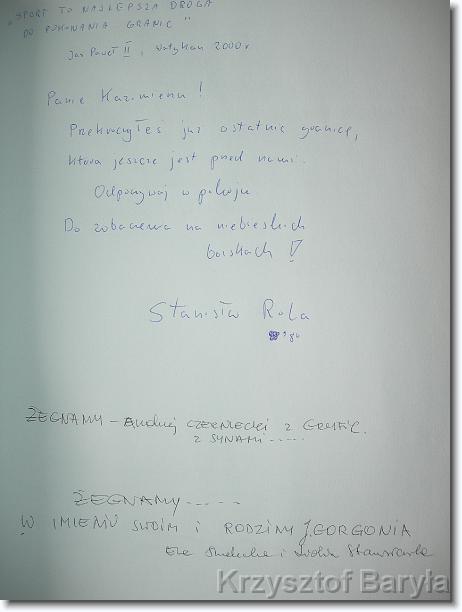 "SPORT TO NAJLEPSZA DROGA
DO POKONANIA GRANIC"
Jan Paweł II, Watykan 2000r
Panie Kazimierzu!
Przekroczyłeś już ostatnią granicę,
która jeszcze jest przed nami.
Odpoczywaj w pokoju
Do zobaczenia na niebieskich
boiskach!
Stanisław Rola
ŻEGNAMY - Andrzej CZERNECKI z
Z SYNAMI.....
ŻEGNAMY.....
W IMIENIU SWOIM I RODZINY J.GORGONIA
i
Krzysztof Baryła